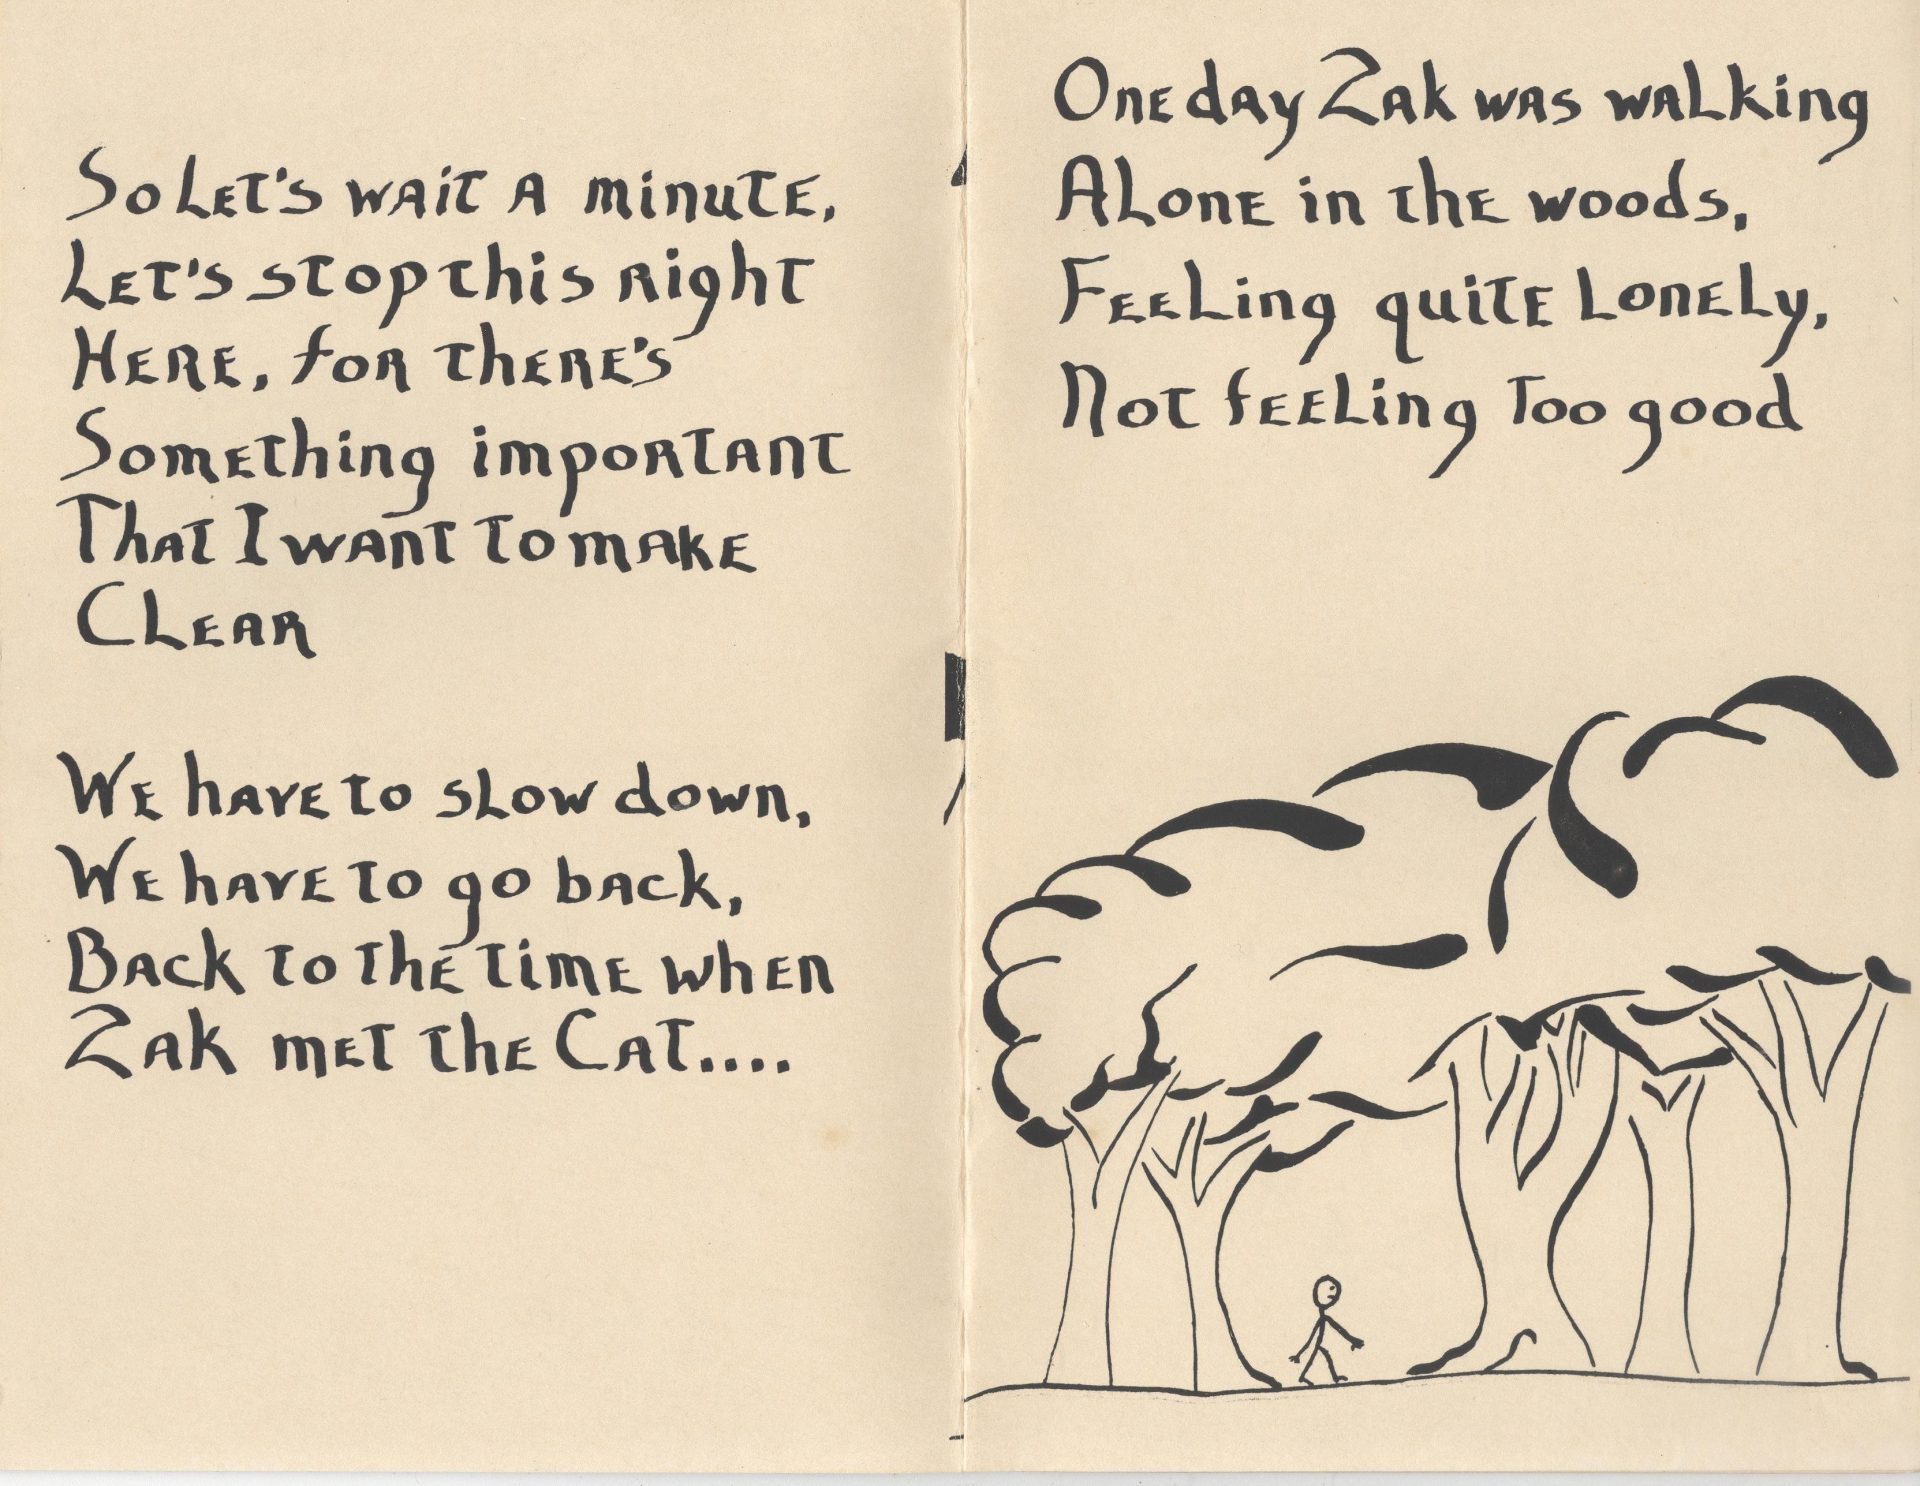 So Let's wait a minute,
Let's stop this right
Here, for there's
Something important
That I want to make
Clear
We have to slow down,
We have to go back,
Back to the time when
Zak met the Cat....
One day Zak was walking
Alone in the woods,
Feeling quite Lonely,
Not feeling Too good